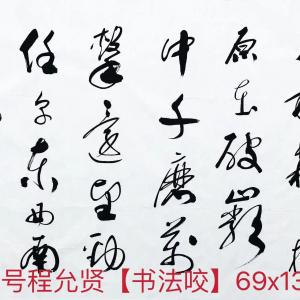 原在破岩
中千磨万
擊還坚劲
任尔东西南
号程允贤【书法咬】69x13